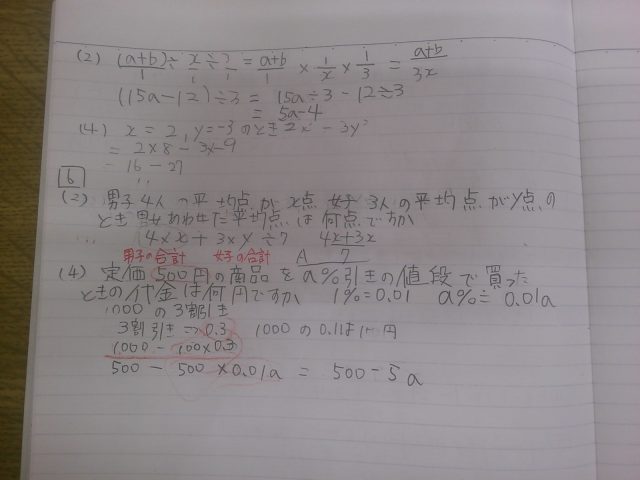 (2) (a+b)/1 ÷ x/1 ÷ 3/1 = a+b/1 × 1/x × 1/3 = a+b/3x
(15a-12)÷3 = 15a÷3-12÷3
= 5a-4
(4) x = 2, y=-3のとき 2x³ - 3y²
= 2×8 - 3×9
= 16 - 27
6
(2) 男子4人の平均点がx点 女子3人の平均点がy点の
とき男女あわせた平均点は何点ですか
(4×x + 3×y)÷7 4x+3x/7
男子の合計 女子の合計 A
(4) 定価500円の商品をa%引きの値段で買った
ときの代金は何円ですか 1%=0.01 a%=0.01a
1000の3割引き
3割引き⇒0.3 1000の0.1は100円
1000 - 100×0.3
500 - 500×0.01a = 500-5a